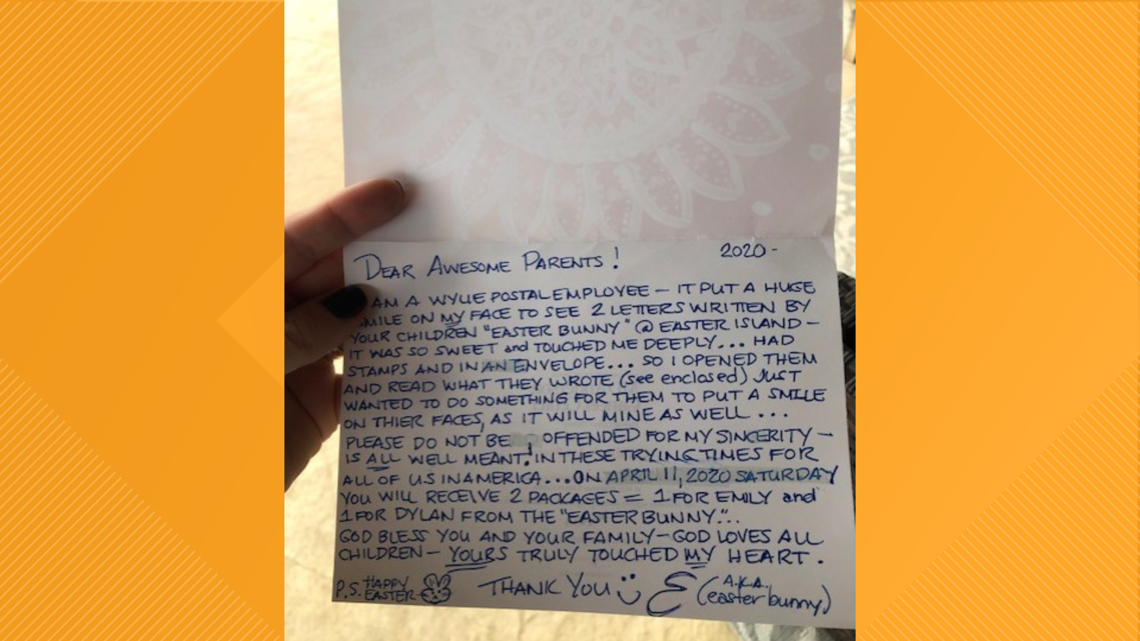 DEAR AWESOME PARENTS! 2020-
AM A WYLIE POSTAL EMPLOYEE - IT PUT A HUGE
SMILE ON MY FACE TO SEE 2 LETTERS WRITTEN BY
YOUR CHILDREN "EASTER BUNNY" @ EASTER ISLAND -
IT WAS SO SWEET and TOUCHED ME DEEPLY... HAD
STAMPS AND IN AN ENVELOPE... SO I OPENED THEM
AND READ WHAT THEY WROTE (see enclosed) JUST
WANTED TO DO SOMETHING FOR THEM TO PUT A SMILE
ON THIER FACES, AS IT WILL MINE AS WELL...
PLEASE DO NOT BE OFFENDED FOR MY SINCERITY -
IS ALL WELL MEANT! IN THESE TRYING TIMES FOR
ALL OF US IN AMERICA... ON APRIL 11, 2020 SATURDAY
YOU WILL RECEIVE 2 PACKAGES = 1 FOR EMILY and
1 FOR DYLAN FROM THE "EASTER BUNNY"...
GOD BLESS YOU AND YOUR FAMILY - GOD LOVES ALL
CHILDREN - YOURS TRULY TOUCHED MY HEART.
P.S. HAPPY EASTER THANK YOU (A.K.A. easter bunny)